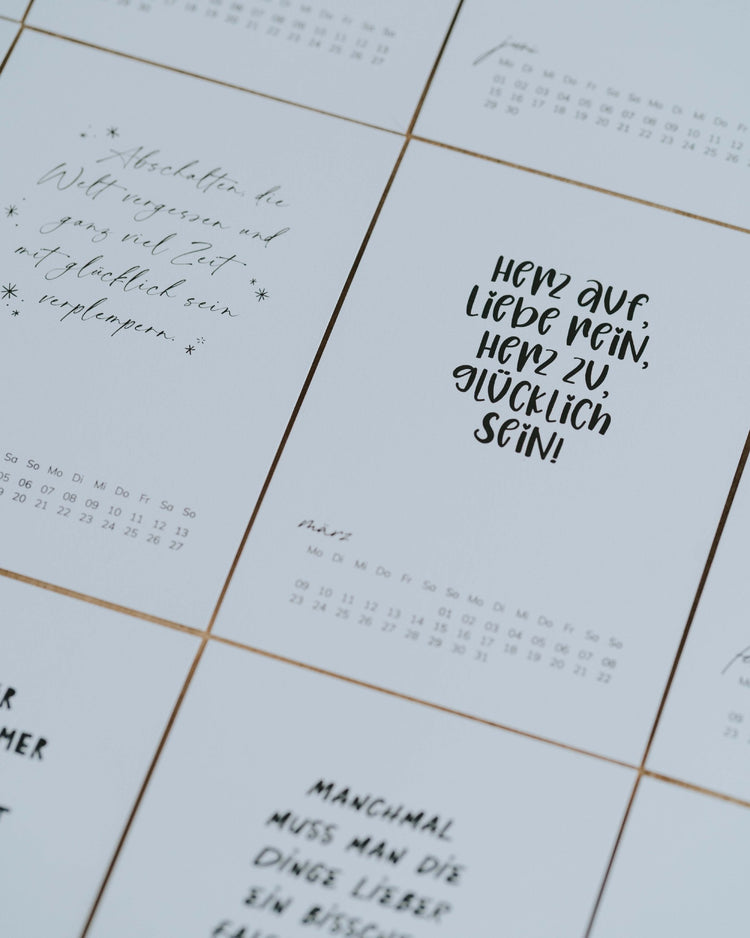 Sa So
12 13
26 27
juni
Mo Di Mi Do Fr Sa So Mo Di Mi Do Fr
01 02 03 04 05 06 07 08 09 10 11 12
15 16 17 18 19 20 21 22 23 24 25 26
29 30
Abschalten, die
Welt vergessen und
ganz viel Zeit
mit glücklich sein
verplempern.
Sa So Mo Di Mi Do Fr Sa So
05 06 07 08 09 10 11 12 13
19 20 21 22 23 24 25 26 27
Herz auf,
Liebe rein,
Herz zu,
glücklich
sein!
märz
Mo Di Mi Do Fr Sa So Mo Di Mi Do Fr Sa So
01 02 03 04 05 06 07 08
09 10 11 12 13 14 15 16 17 18 19 20 21 22
23 24 25 26 27 28 29 30 31
09
23
MANCHMAL
MUSS MAN DIE
DINGE LIEBER
EIN